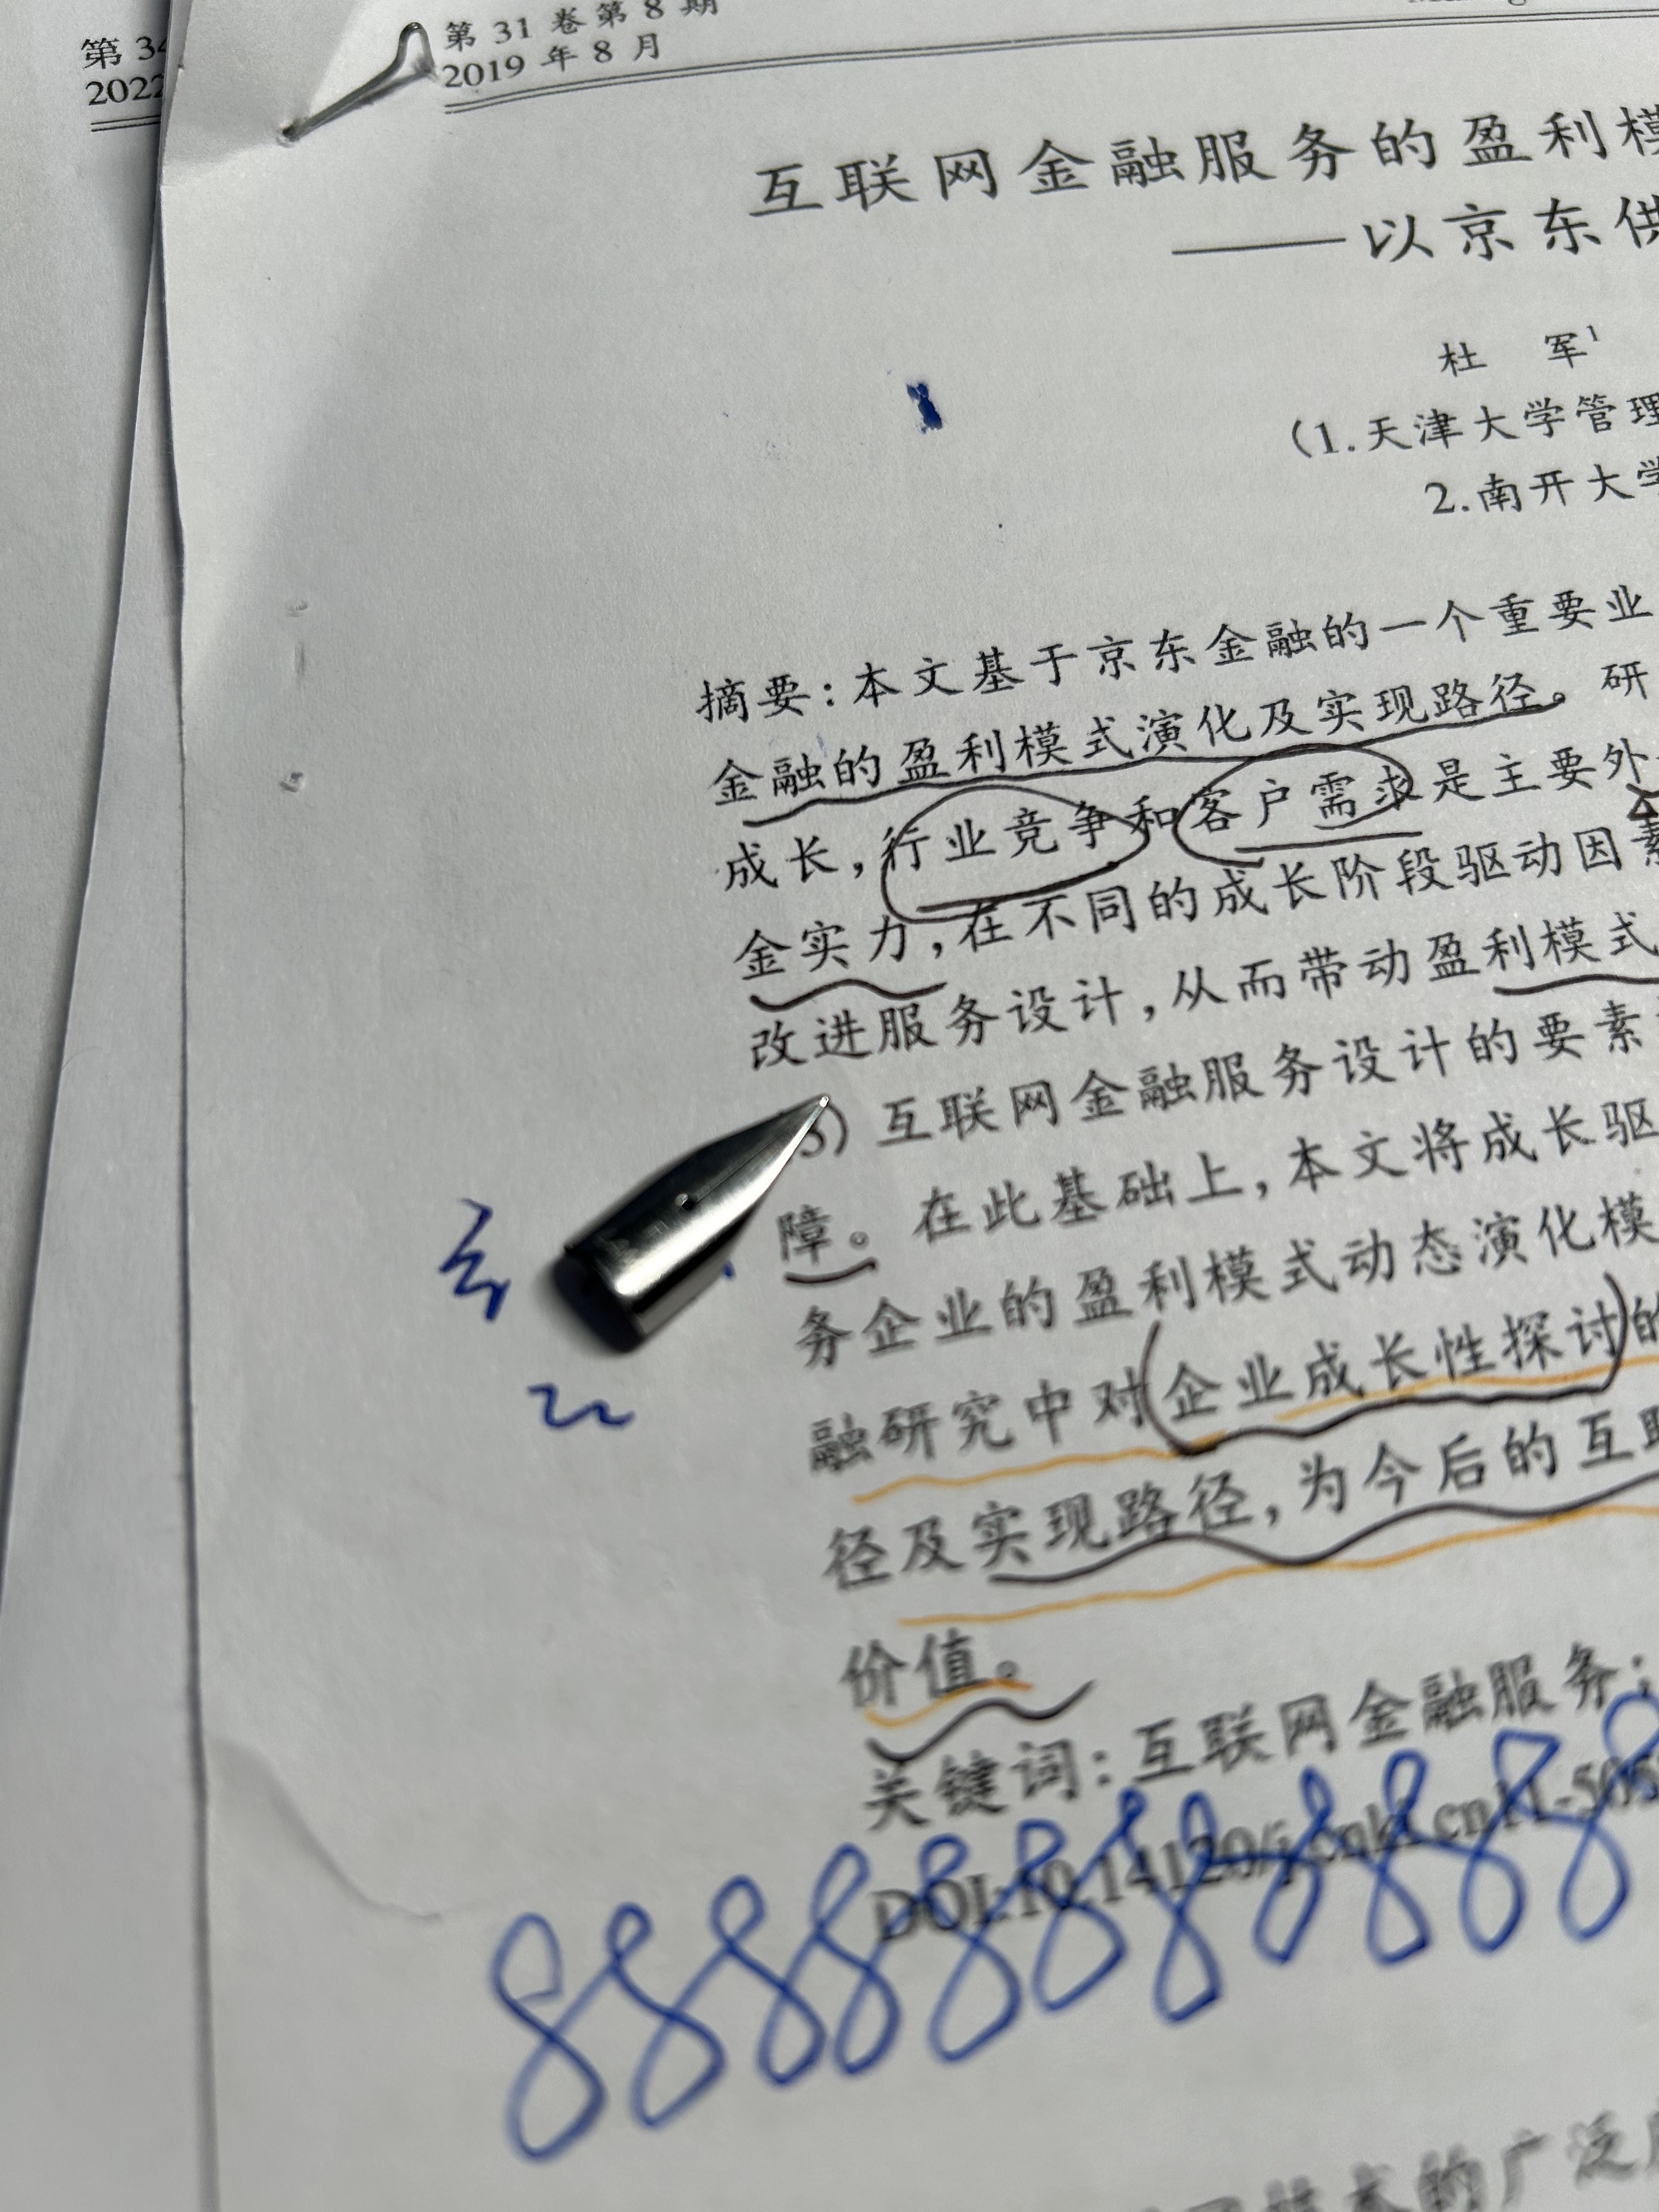 第 34
2022
第 31 卷 第 8 期
2019 年 8 月
互联网金融服务的盈利模
——以京东供
杜 军1
(1.天津大学管理
2.南开大学
摘要：本文基于京东金融的一个重要业
金融的盈利模式演化及实现路径。研
成长，行业竞争和客户需求是主要外
金实力，在不同的成长阶段驱动因素
改进服务设计，从而带动盈利模式
3）互联网金融服务设计的要素
障。在此基础上，本文将成长驱
务企业的盈利模式动态演化模
融研究中对企业成长性探讨的
径及实现路径，为今后的互联
价值。
关键词：互联网金融服务；
DOI:10.14120/j.cnki.cn11-505
8888888888
的广泛